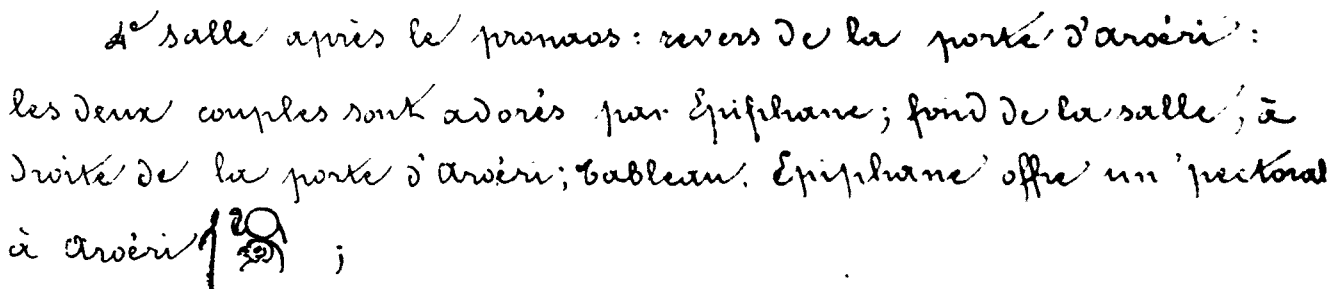 4e salle après le pronaos: revers de la porte d'Aroéri:
les deux couples sont adorés par Épiphane; fond de la salle, à
droite de la porte d'Aroéri; tableau. Épiphane offre un pectoral
à Aroéri ;